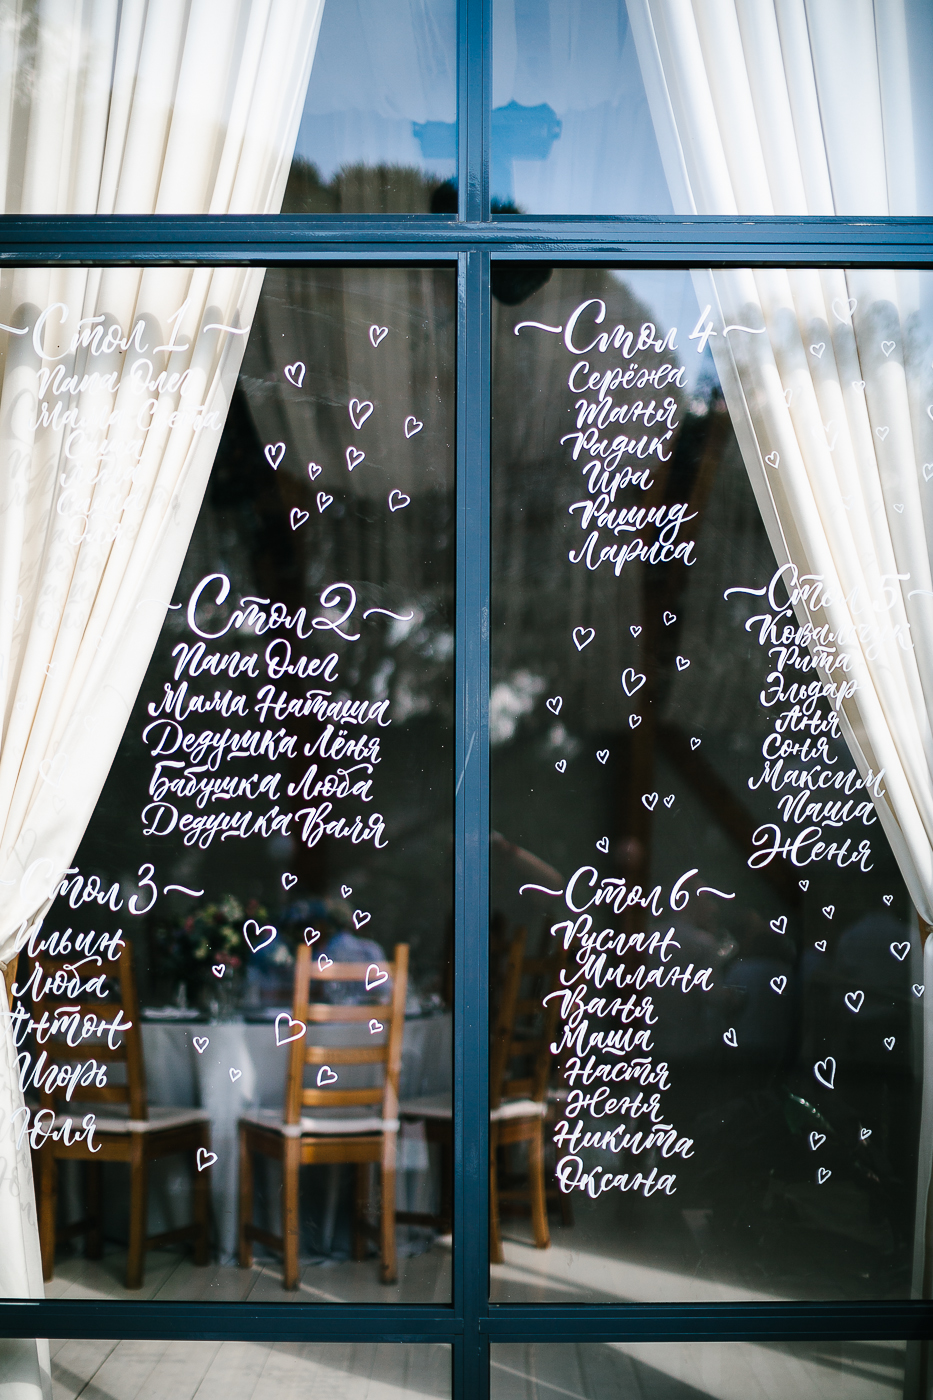 Стол 1
Папа Олег
Мама
Стол 2
Папа Олег
Мама Наташа
Дедушка Лёня
Бабушка Люба
Дедушка Валя
Стол 3
Ильин
Люба
Антон
Игорь
Юля
Стол 4
Серёжа
Таня
Радик
Ира
Рашид
Лариса
Стол 5
Ковальчук
Рита
Эльдар
Аня
Соня
Максим
Паша
Женя
Стол 6
Руслан
Милана
Ваня
Маша
Настя
Женя
Никита
Оксана